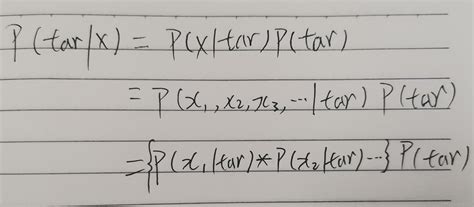 P(tar|x) = P(x|tar)P(tar)
= P(x₁,x₂,x₃,…|tar) P(tar)
={P(x₁|tar)*P(x₂|tar)…} P(tar)